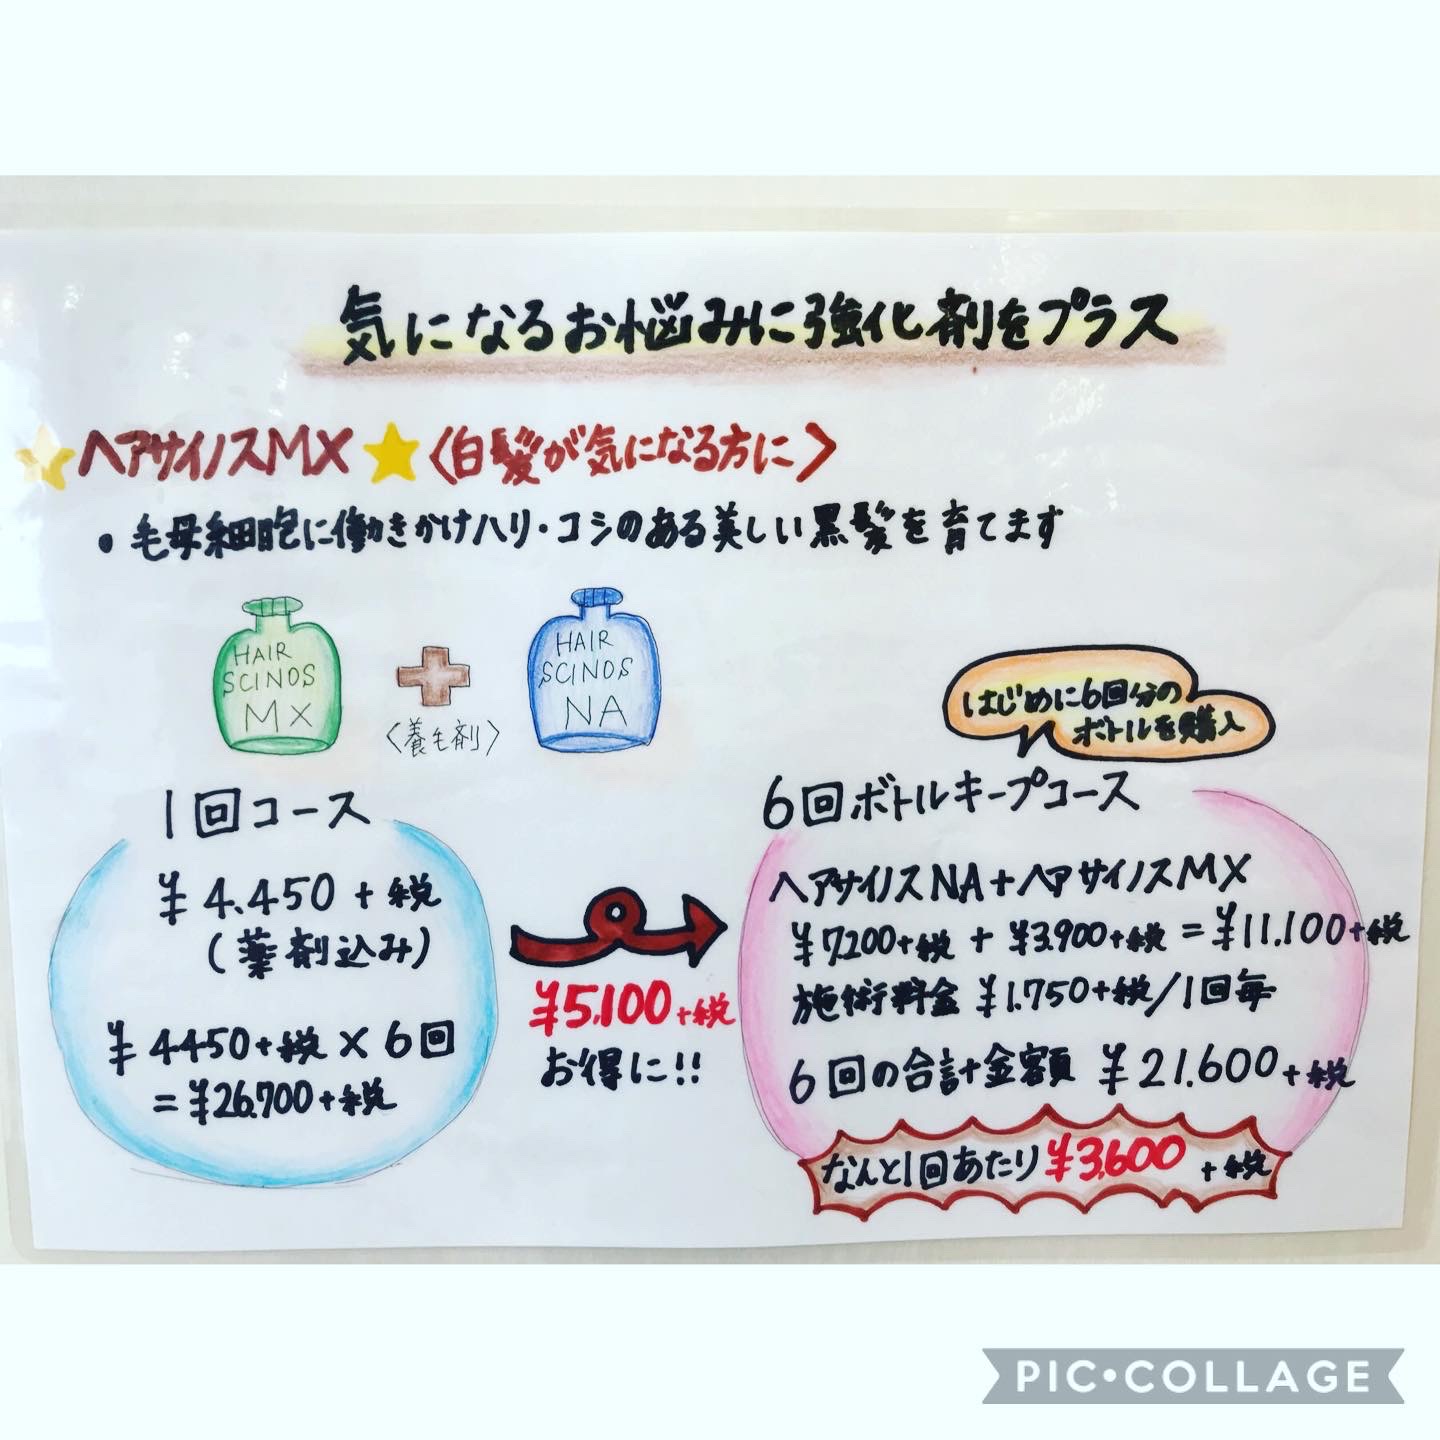 気になるお悩みに強化剤をプラス
ヘアサイノスMX 〈白髪が気になる方に〉
• 毛母細胞に働きかけハリ・コシのある美しい黒髪を育てます
HAIR
SCINOS
MX
〈養毛剤〉
HAIR
SCINOS
NA
はじめに6回分の
ボトルを購入
1回コース
¥4.450+税
(薬剤込み)
¥4450+税×6回
=¥26.700+税
¥5.100+税
お得に!!
6回ボトルキープコース
ヘアサイノスNA+ヘアサイノスMX
¥7.200+税+¥3.900+税=¥11.100+税
施術料金 ¥1.750+税/1回毎
6回の合計金額 ¥21.600+税
なんと1回あたり¥3.600+税
PIC•COLLAGE